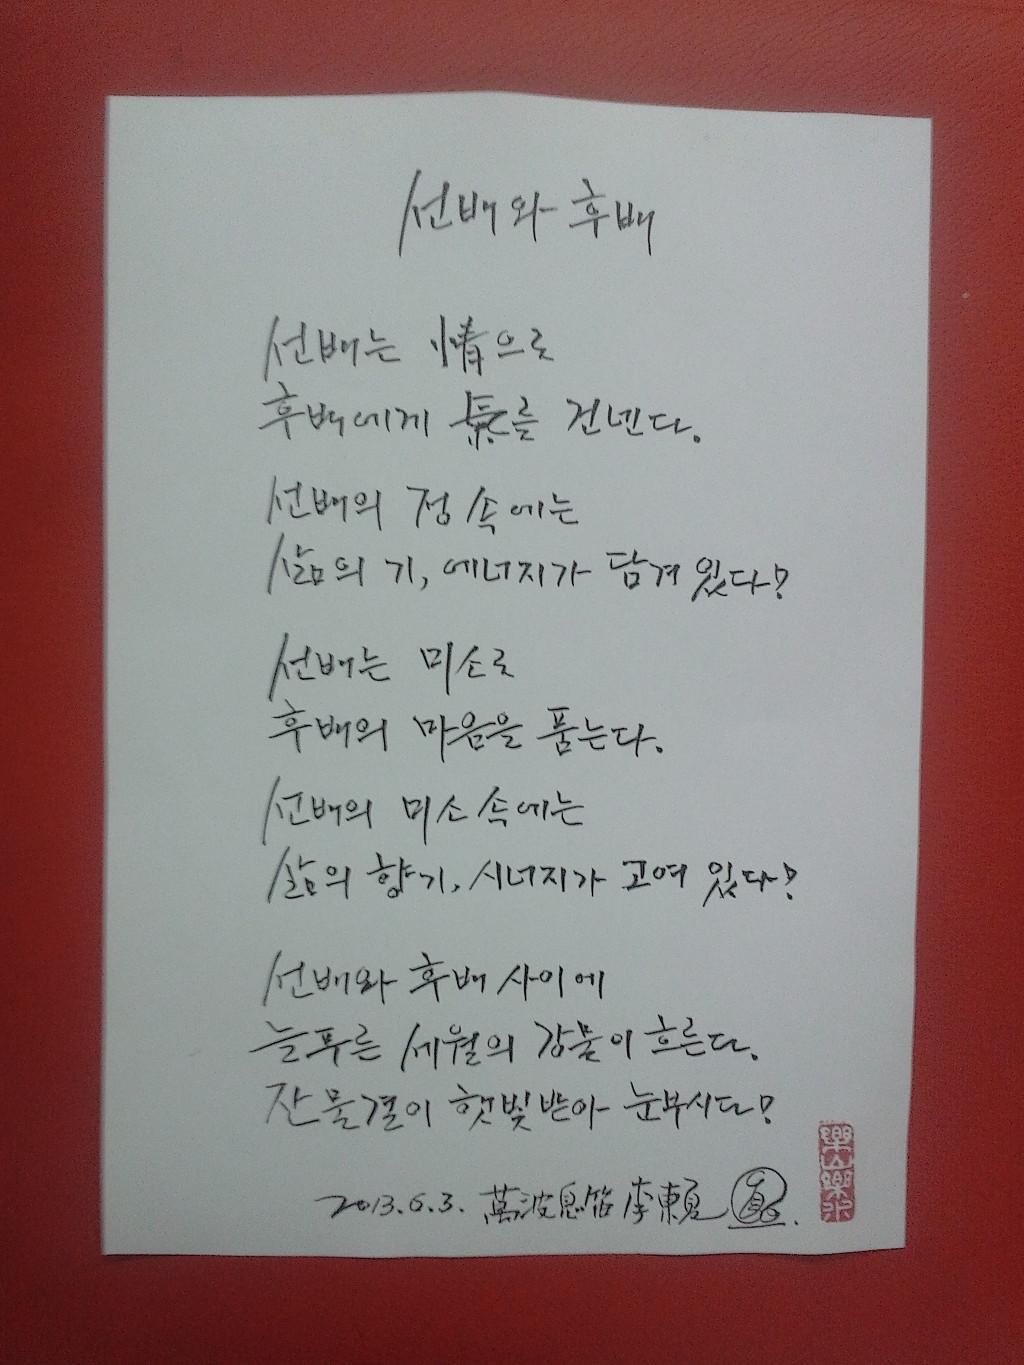 선배와 후배
선배는 情으로
후배에게 氣를 건넨다.
선배의 정 속에는
삶의 기, 에너지가 담겨 있다!
선배는 미소로
후배의 마음을 품는다.
선배의 미소 속에는
삶의 향기, 시너지가 고여 있다!
선배와 후배 사이에
늘푸른 세월의 강물이 흐른다.
잔물결이 햇빛받아 눈부시다!
2013.6.3. 萬波息笛 李
樂山樂水